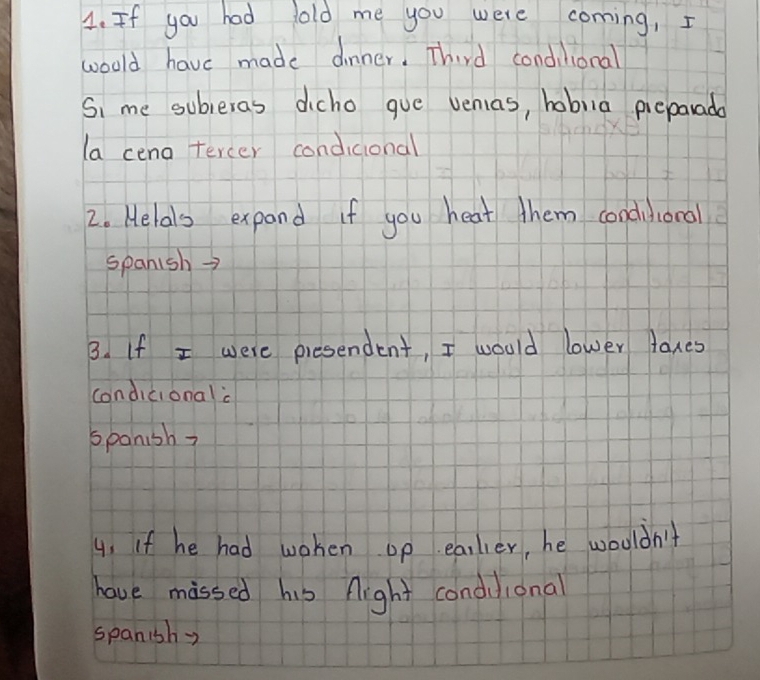 1. If you had told me you were coming, I
would have made dinner. Third conditional
Si me subieras dicho que venias, habria preparado
la cena tercer condicional
2. Metals expand if you heat them conditional
spanish →
3. If I were presendent, I would lower taxes
condicional:
spanish →
4. if he had woken up earlier, he wouldn't
have missed his flight conditional
spanish →